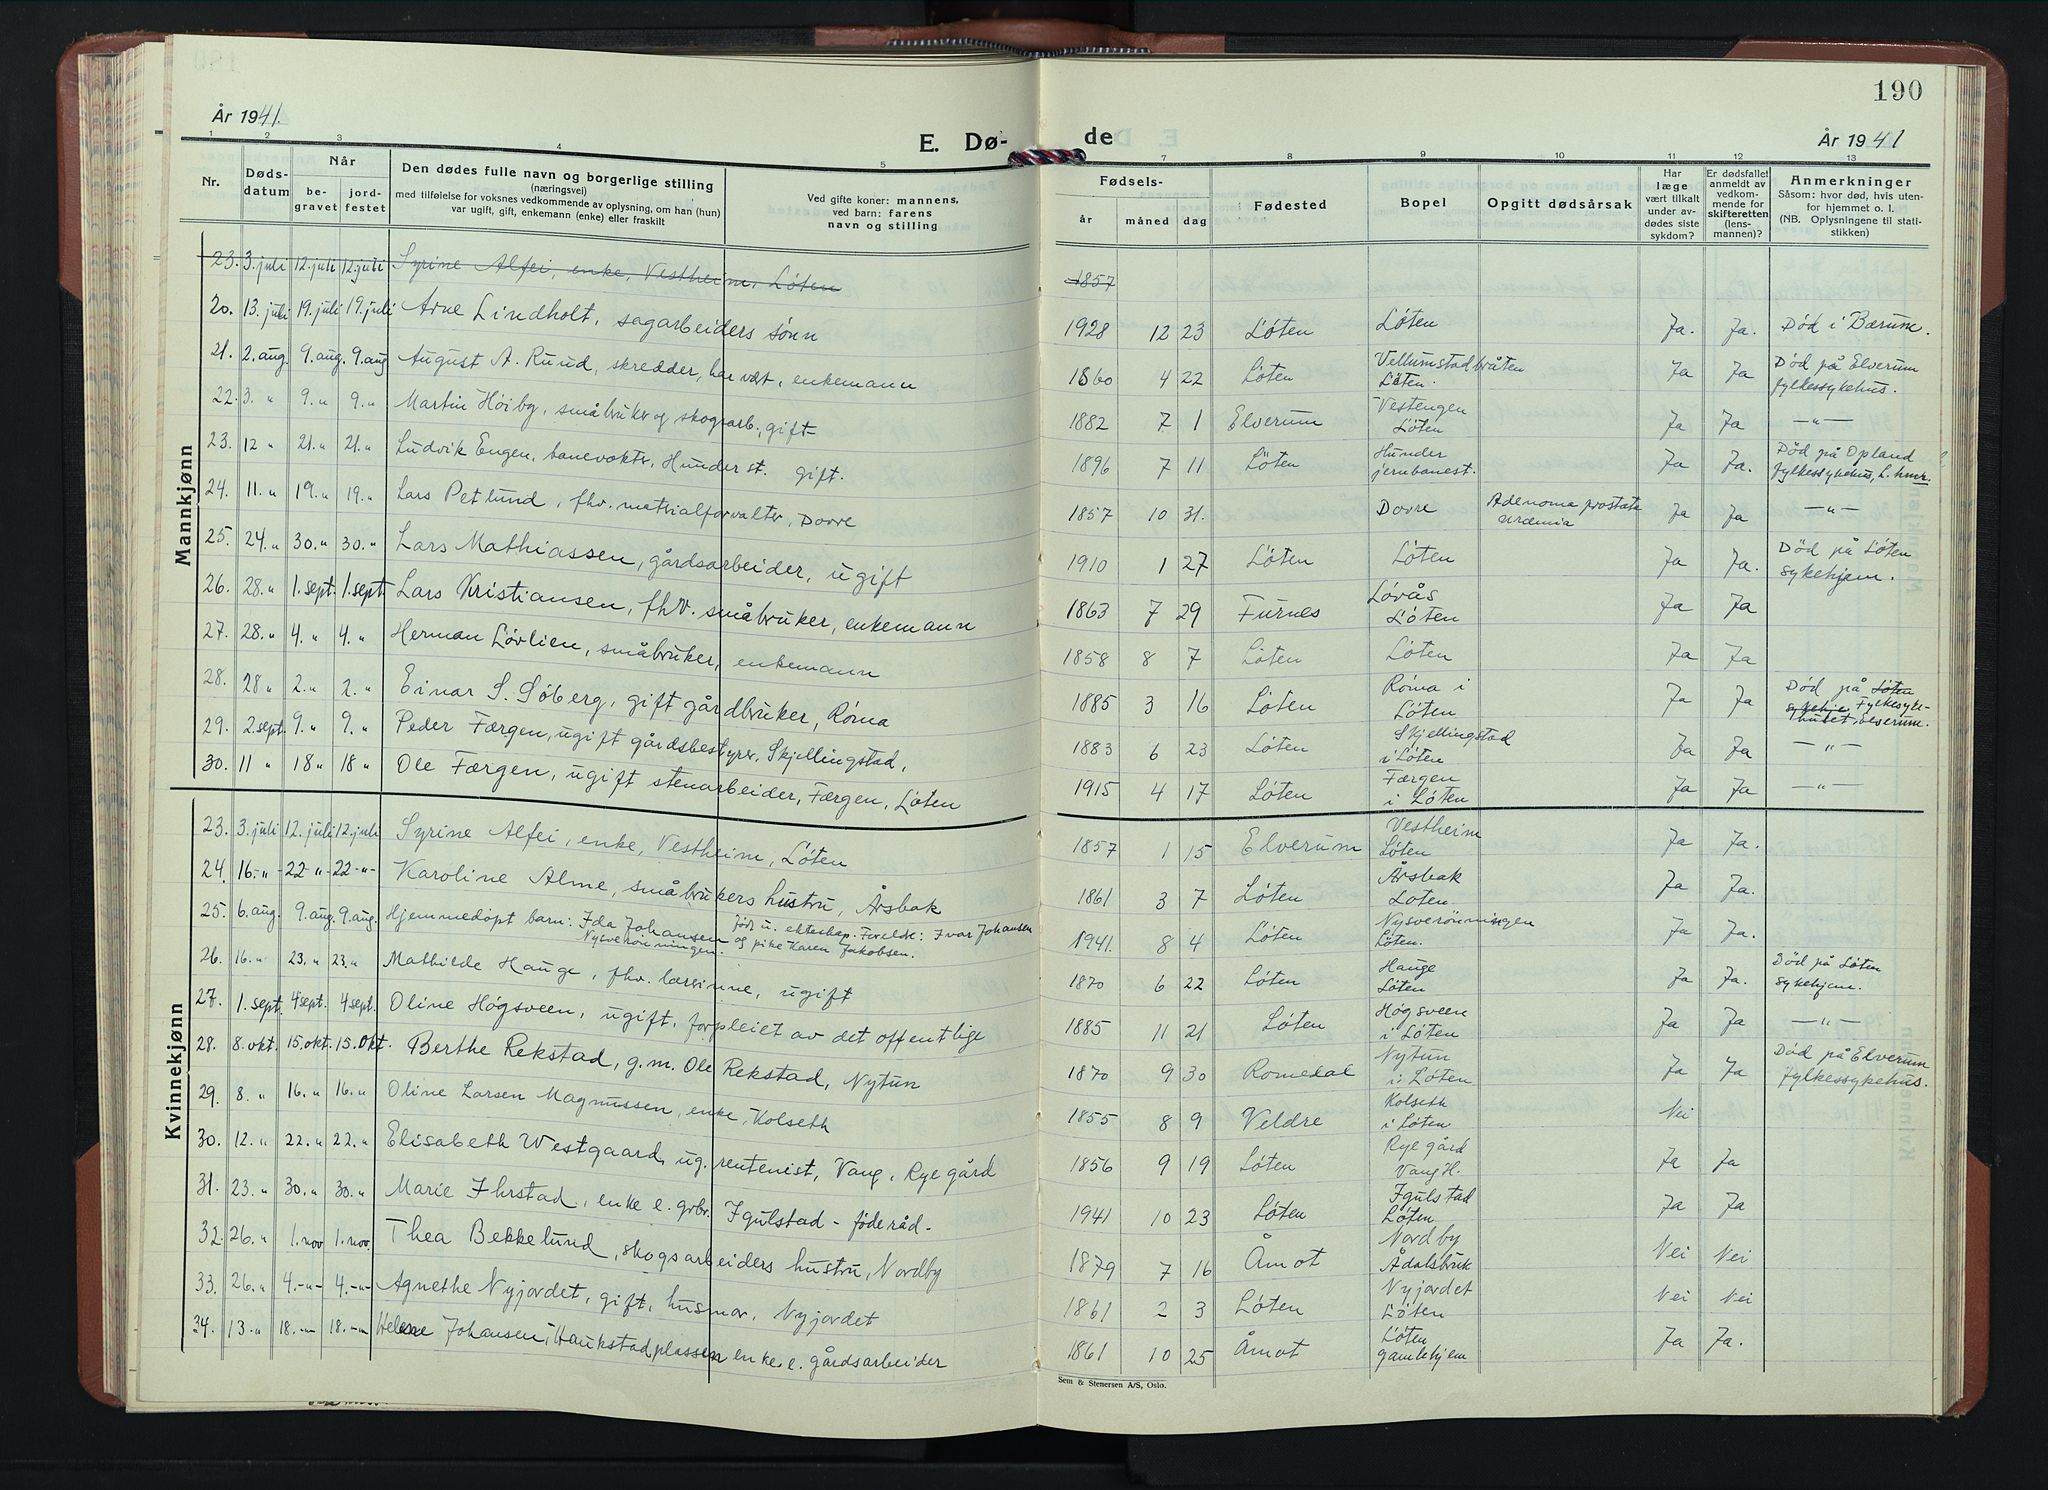 190
År 1941.
E. Dø-
de
År 1941
1 2 3 4 5 7 8 9 10 11 12 13
Nr.
Døds-
datum
Når
be-
gravet
jord-
festet
Den dødes fulle navn og borgerlige stilling
(næringsvei)
med tilføielse for voksnes vedkommende av oplysning, om han (hun)
var ugift, gift, enkemann (enke) eller fraskilt
Ved gifte koner: mannens,
ved barn: farens
navn og stilling
Fødsels-
år måned dag
Fødested
Bopel
Opgitt dødsårsak
Har
læge
vært tilkalt
under av-
dødes siste
sykdom?
Er dødsfallet
anmeldt av
vedkom-
mende for
skifteretten
(lens-
mannen)?
Anmerkninger
Såsom: hvor død, hvis uten-
for hjemmet o. l.
(NB. Oplysningene til stati-
stikken)
Mannkjønn
23. 3. juli 12. juli 12. juli Syrine Alfei, enke, Vestheim, Løten 1857
20. 13. juli 19. juli 19. juli Arne Lindholt, sagarbeiders sønn 1928 12 23 Løten Løten Ja. Ja. Død i Bærum.
21. 2. aug. 9. aug. 9. aug August A. Ruud, skredder, har vært, enkemann 1860 4 22 Løten Vellumstadbråten Løten. Ja Ja Død på Elverum fylkessykehus.
22. 3. " 9. " 9. " Martin Høiby, småbruker og skogsarb., gift 1882 7 1 Elverum Vestengen Løten Ja Ja —"—
23. 12 " 21. " 21. " Ludvik Engen, banevokter, Hunder st. gift. 1896 7 11 Løten Hunder jernbanest. Ja Ja. Død på Opland fylkessykehus, L.hmr.
24. 11. " 19. " 19. " Lars Petlund, fhv. materialforvalter, Dovre 1857 10 31. Dovre Adenoma prostate uræmia Ja Ja —"—
25. 24. " 30. " 30. " Lars Mathiassen, gårdsarbeider, ugift 1910 1 27 Løten Løten Ja Ja. Død på Løten sykehjem.
26. 28. " 1. sept. 1. sept. Lars Kristiansen, fhv. småbruker, enkemann 1863 7 29 Furnes Løvås Løten Ja Ja
27. 28. " 4. " 4. " Herman Løvlien, småbruker, enkemann 1858 8 7 Løten Løten Ja Ja
28. 28 " 2. " 2. " Einar S. Søberg, gift gårdbruker, Røma 1885 3 16 Løten Røma i Løten Ja Ja Død på Løten sykehje Fylkessyke-huset, Elverum.
29. 2. sept. 9. " 9. " Peder Færgen, ugift gårdsbestyrer, Skjellingstad, 1883 6 23 Løten Skjellingstad i Løten Ja Ja —"—
30. 11 " 18 " 18 " Ole Færgen, ugift stenarbeider, Færgen, Løten 1915 4 17 Løten Færgen i Løten Ja Ja —"—
Kvinnekjønn
23. 3. juli 12. juli 12. juli Syrine Alfei, enke, Vestheim, Løten 1857 1 15 Elverum Vestheim Løten Ja Ja.
24. 16.-"- 22 -"- 22 -"- Karoline Alme, småbrukers hustru, Årsbak 1861 3 7 Løten Årsbak Løten. Ja Ja.
25. 6. aug. 9. aug. 9. aug. Hjemmedøpt barn: Ida Johansen Nysverønningen. født u. ekteskap. Forelde: Ivar Johansen og pike Karen Jakobsen. 1941. 8 4 Løten Nysverönningen Løten. Ja Ja.
26. 16. " 23. " 23. " Mathilde Hauge, fhv. lærerinne, ugift 1870 6 22 Løten Hauge Løten Ja Ja. Død på Løten sykehjem.
27. 1. sept. 4 sept. 4 sept. Oline Høgsveen, ugift, forpleiet av det offentlige 1885 11 21 Løten Høgsveen i Løten Ja Ja —"—
28. 8. okt. 15. okt. 15. okt. Berthe Rekstad, g.m. Ole Rekstad, Nytun 1870 9 30 Romedal Nytun i Løten Ja Ja Død på Elverum fylkessykehus.
29. 8. " 16. " 16. " Oline Larsen Magnussen, enke, Kolseth 1855 8 9 Veldre Kolseth i Løten Nei
30. 12. " 22. " 22. " Elisabeth Westgaard, ug. rentenist, Vang, Rye gård 1856 9 19 Løten Rye gård Vang H. Ja Ja
31. 23. " 30. " 30. " Marie Ihrstad, enke e. grbr. Igulstad - føderåd - 1941 10 23 Løten Igulstad Løten Ja Ja
32. 26. " 1. nov 1. nov. Thea Bekkelund, skogsarbeiders hustru, Nordby 1879 7 16 Åmot Nordby Ådalsbruk Nei Nei
33. 26. " 4.-"- 4.-"- Agnethe Nyjordet, gift, husmor, Nyjordet 1861 2 3 Løten Nyjordet Løten Nei Nei
34. 13. " 18.-"- 18.-"- Helene Johansen, Haukstadplassen enke e. gårdsarbeider 1861 10 25 Åmot Løten gamlehjem Ja Ja.
Sem & Stenersen A/S, Oslo.